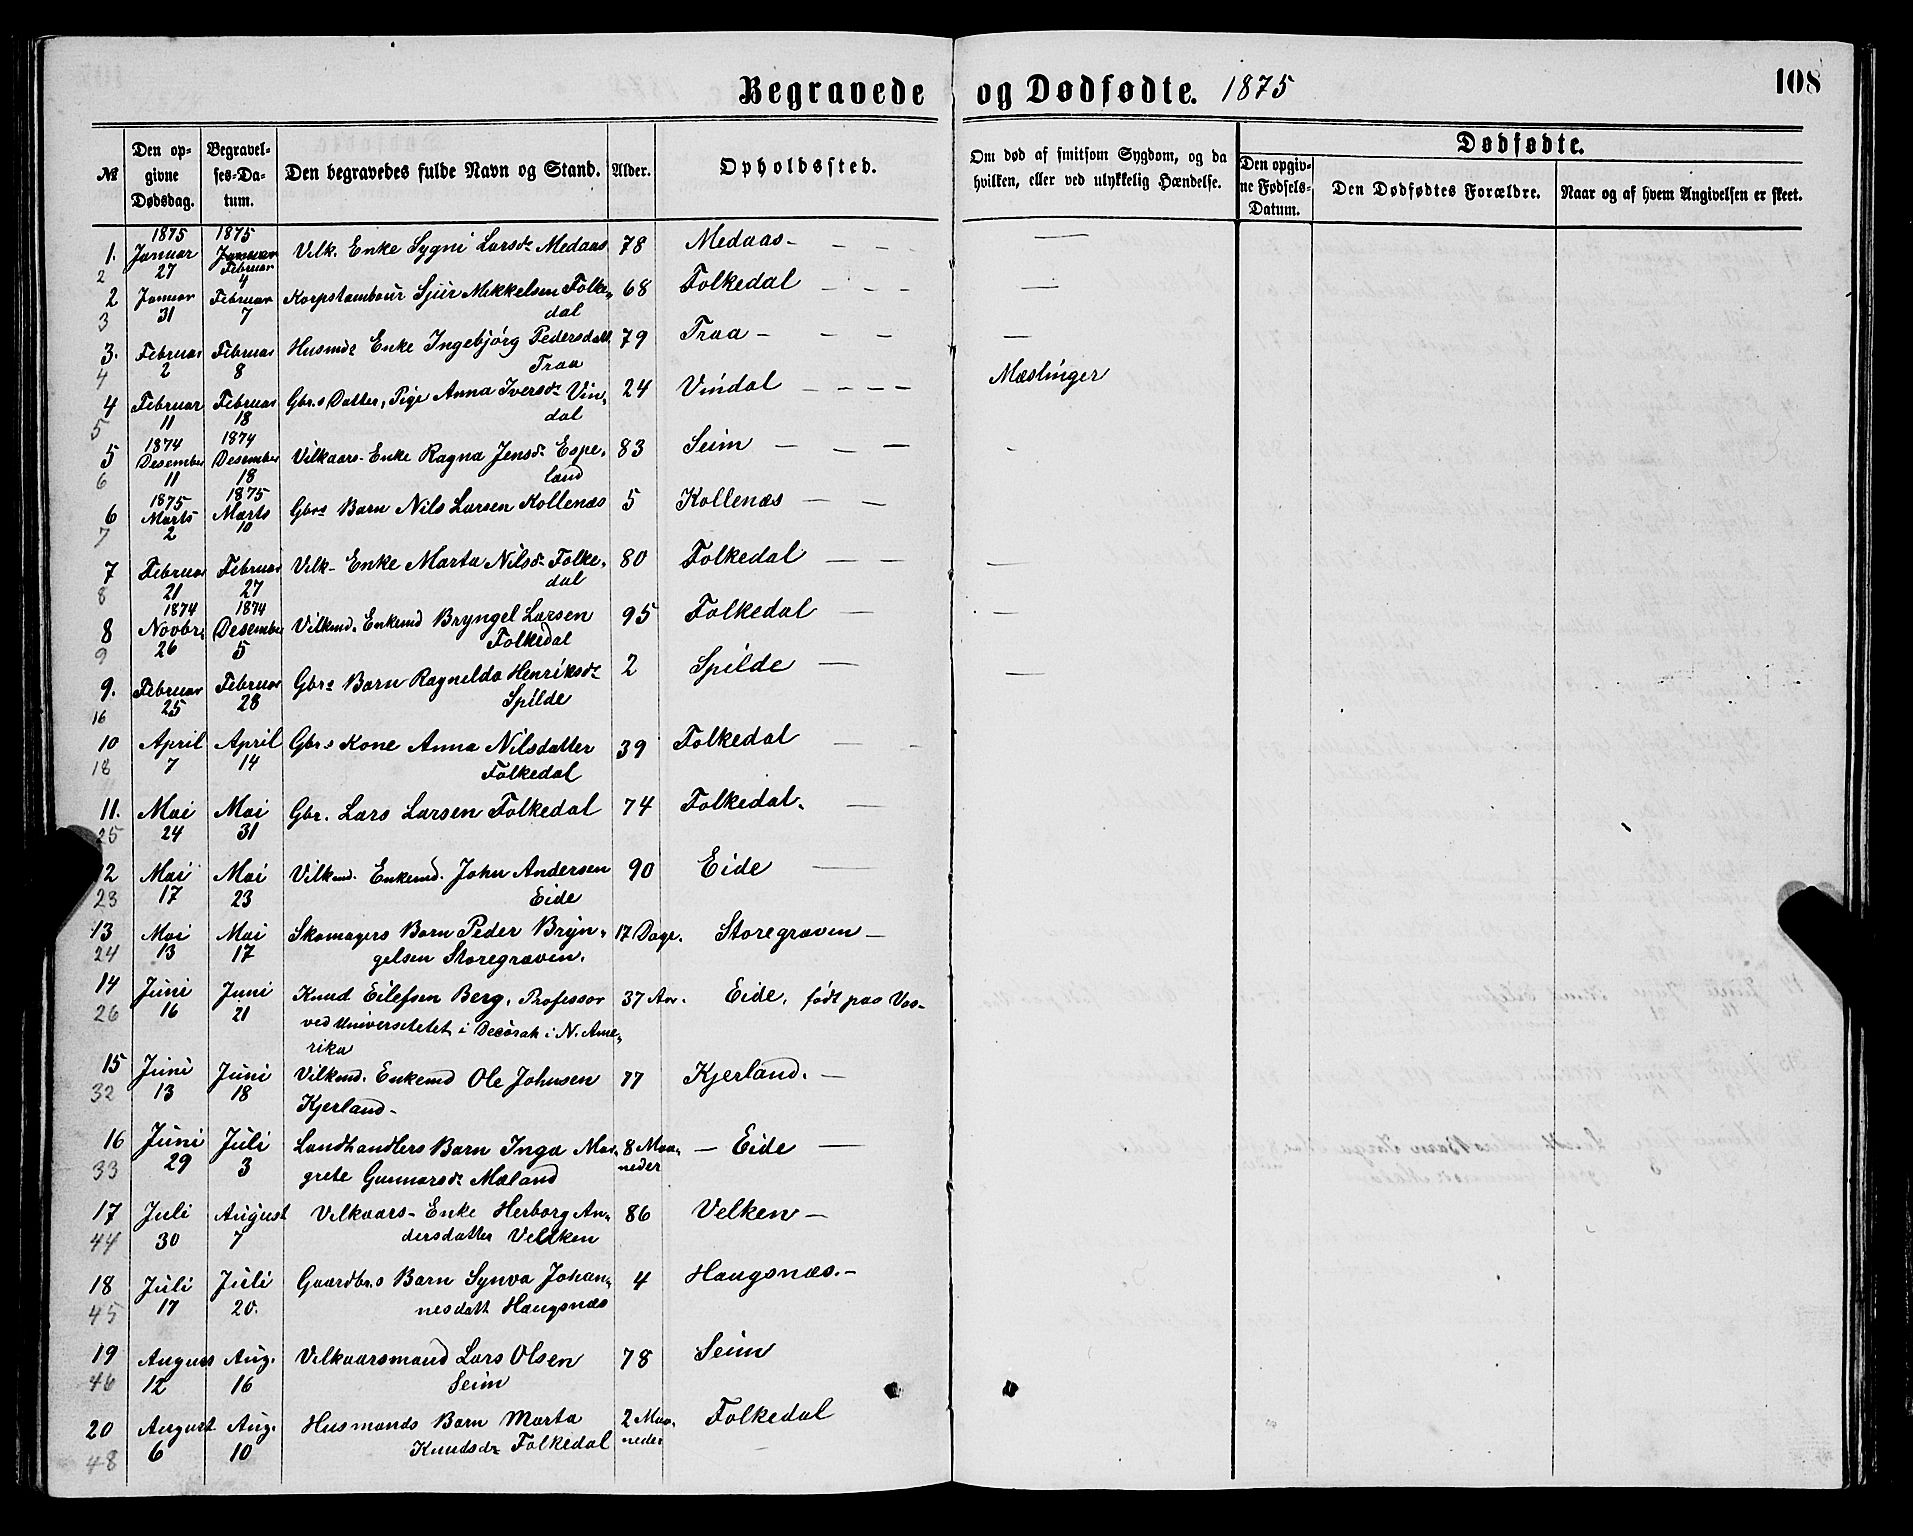 Begravede og Dødfødte. 1875
108
№ | Den opgivne Dødsdag. | Begravelses-Datum. | Den begravedes fulde Navn og Stand. | Alder. | Opholdssted. | Om død af smitsom Sygdom, og da hvilken, eller ved ulykkelig Hændelse. | Dødfødte.
Den opgivne Fødsels-Datum. | Den Dødfødtes Forældre. | Naar og af hvem Angivelsen er skeet.
1875 1875
1. Januar Januar Vilk. Enke Sygni Larsdr Medaas 78 Medaas - — — —
2 27 Februar 4
2 Januar Februar Korpstambour Sjur Mikkelsen Folke- 68 Folkedal — — — —
3 31 7 dal
3. Februar Februar Husmds Enke Ingebjørg Pedersdatt 79 Traa — — — —
4 2 8 Traa
4 Februar Februar Gbr.s Datter, Pige Anna Iversdr Vin- 24 Vindal — — — — Mæslinger
5 11 18 dal
1874 1874
5 Desember Desember Vilkaars-Enke Ragna Jensdr Espe- 83 Seim — — — -
6 11 18 land
1875 1875
6 Marts Marts Gbrs Barn Nils Larsen Kollenæs 5 Kollenæs — —
7 2 10
7 Februar Februar Vilk- Enke Marta Nilsdr Folke- 80 Folkedal — — —
8 21 27 dal
1874 1874
8 Novbr. Desember Vilkmd. Enkemd Bryngel Larsen 95 Folkedal — —
9 26 5 Folkedal
9. Februar Februar Gbrs Barn Ragnilda Henriksdr 2 Spilde — —
16 25 28 Spilde
10 April April Gbr.s Kone Anna Nilsdatter 39 Folkedal — -
18 7 14 Folkedal
11. Mai Mai Gbr. Lars Larsen Folkedal 74 Folkedal. —
25 24 31
12 Mai Mai Vilkmd. Enkemd. John Andersen 90 Eide —
23 17 23 Eide
13 Mai Mai Skomagers Barn Peder Bryn- 17 Dage. Storegraven —
24 13 17 gelsen Storegraven.
14 Juni Juni Knud Eilefsen Berg, Professor 37 Aar. Eide, født paa Vos-
26 16 21 ved Universitetet i Decorah i N. Ame-
rika
15 Juni Juni Vilkmd. Enkemd Ole Johnsen 77 Kjerland. —
32 13 18 Kjerland-
16 Juni Juli Landhandlers Barn Inga Mar- 8 Maa- — Eide —
33 29 3 grete Gunnarsdr Mæland neder
17 Juli August Vilkaars- Enke Herborg An- 86 Velken —
44 30 7 dersdatter Velken
18 Juli Juli Gaardbr.s Barn Synva Johan- 4 Haugsnæs. —
45 17 20. nesdatt Haugsnæs
19 August Aug. Vilkaarsmand Lars Olsen 78 Seim
46 12 16 Seim
20 August Aug. Husmands Barn Marta 2 Maa- Folkedal
48 6 10 Knudsdr Folkedal neder